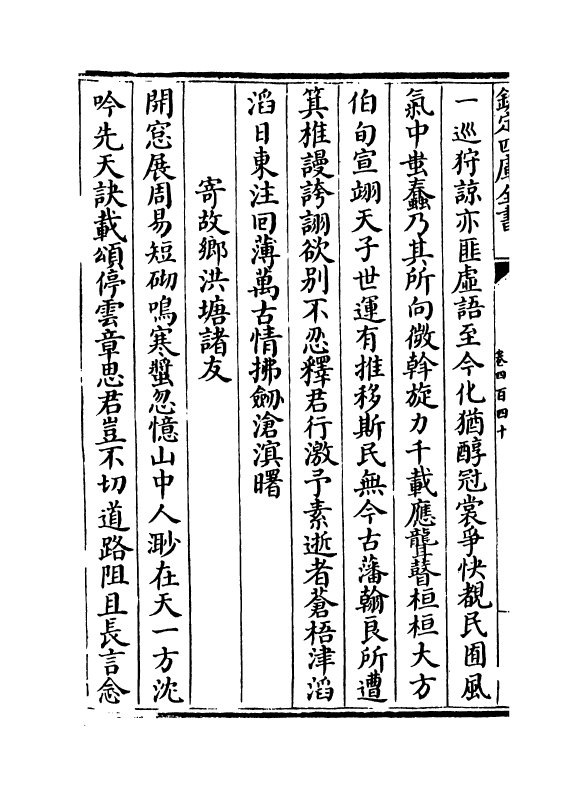 欽定四庫全書
卷四百四十
一巡狩諒亦匪虛語至今化猶醇冠裳爭快覩民囿風
氣中蚩蠢乃其所向微斡旋力千載應聾瞽桓桓大方
伯旬宣翊天子世運有推移斯民無今古藩翰良所遭
箕推謾誇詡欲别不忍釋君行激予素逝者蒼梧津滔
滔日東注回薄萬古情拂劒滄溟曙
寄故鄉洪塘諸友
開窓展周易短砌鳴寒螿忽憶山中人渺在天一方沈
吟先天訣載頌停雲章思君豈不切道路阻且長言念